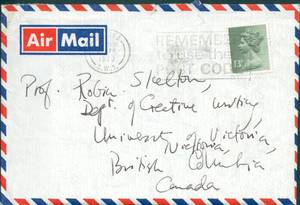 Air Mail
REMEMBER
to use the
POST CODE
1979
13P
Prof. Robin Skelton,
Dept. of Creative Writing,
University of Victoria,
Victoria,
British Columbia,
Canada